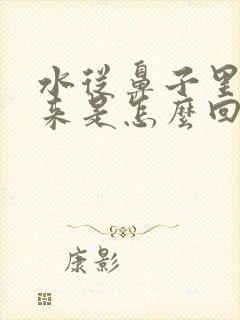 水從鼻子里
来是怎麼回
康影